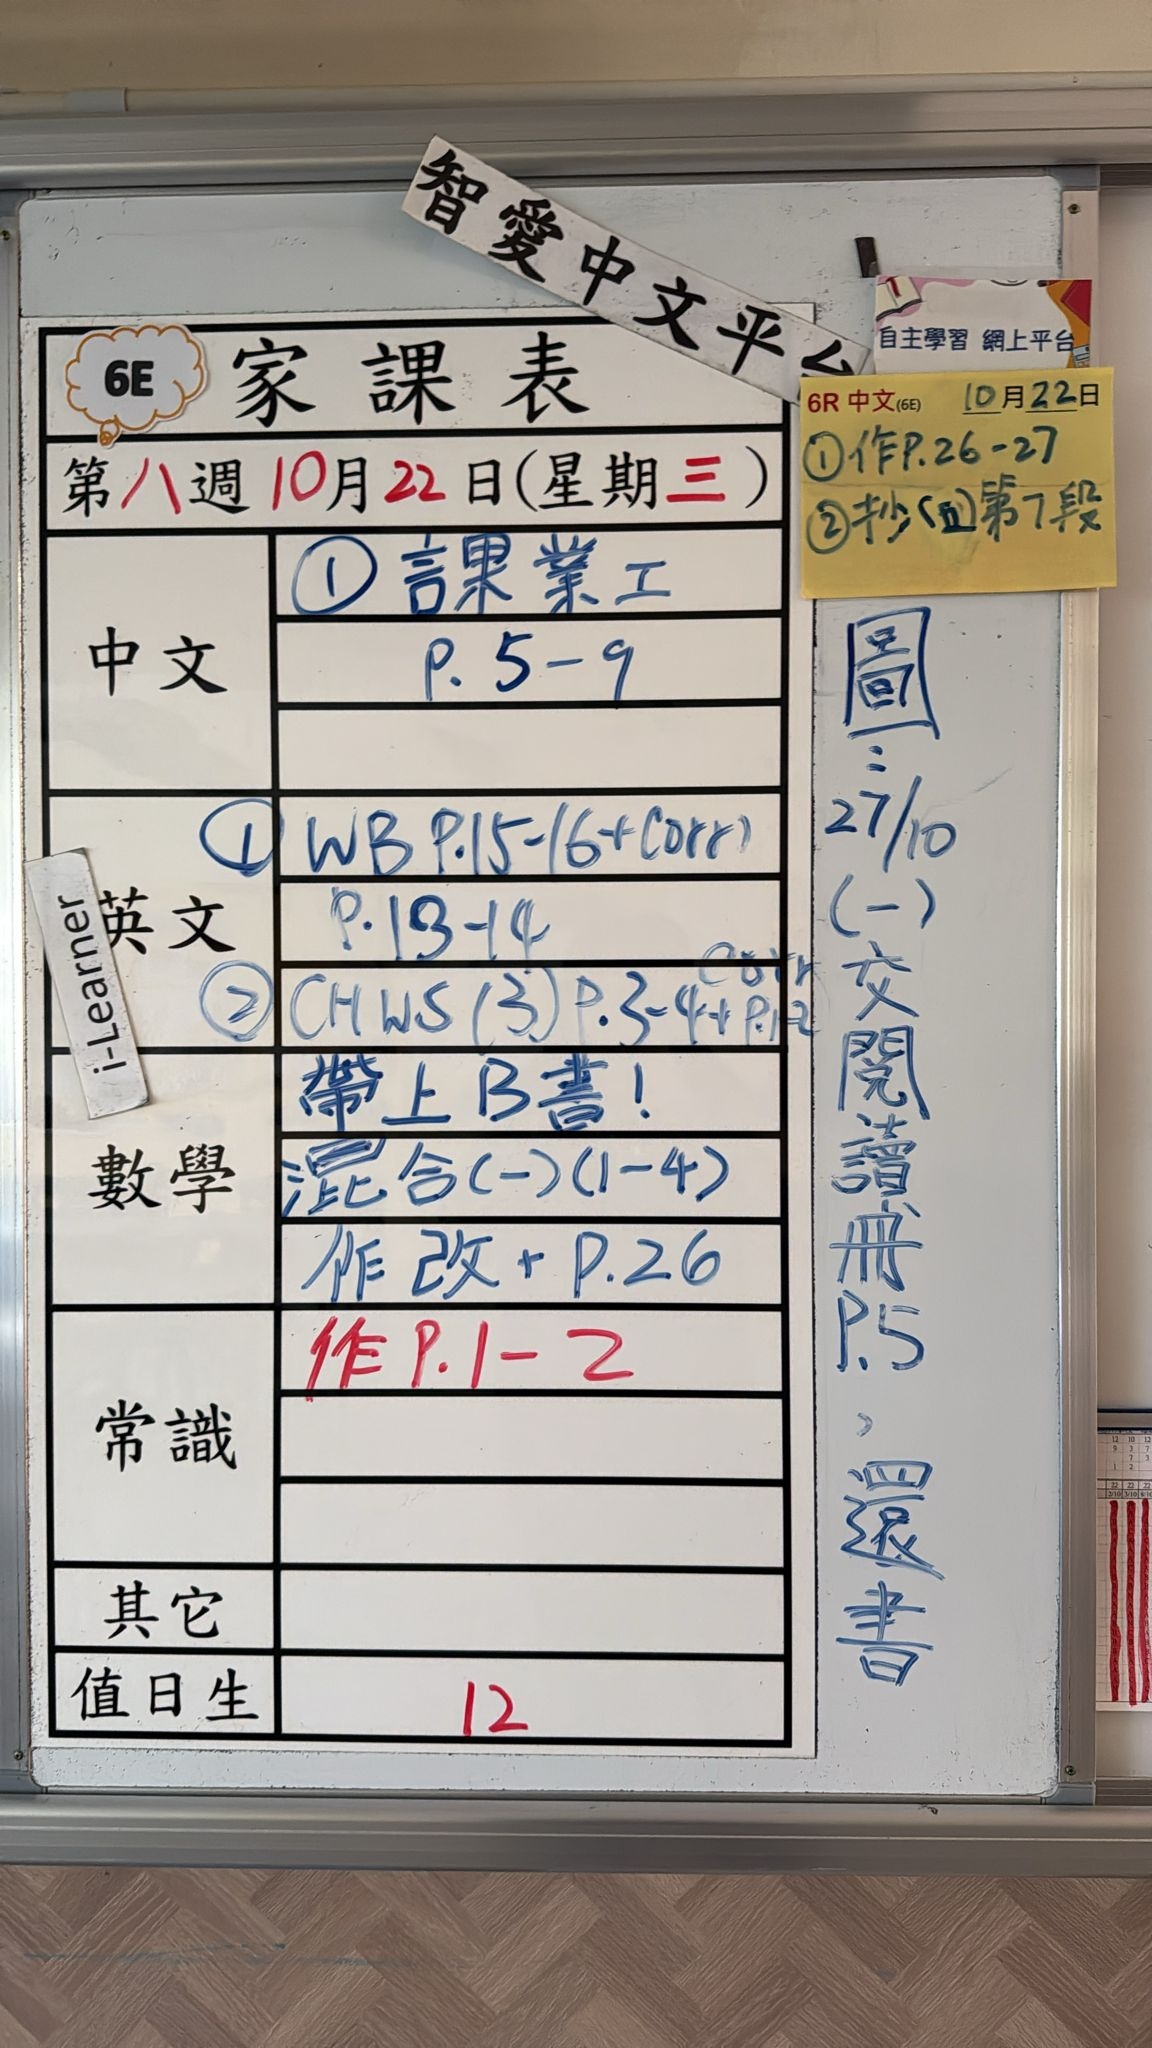 智愛中文平台
自主學習 網上平台
6E 家課表
第八週10月22日(星期三)
中文
① 課業工
P.5-9
英文
i-Learner
① WB P.15-16+Corr
P.13-14
② CH WS (3) P.3-4+Corr P.1-2
數學
帶上B書!
混合(一)(1-4)
作改+P.26
常識
作P.1-2
其它
值日生
12
6R 中文(6E) 10月22日
①作P.26-27
②抄 第7段
圖:
27/10
(一)
交閱讀冊
P.5
,還書